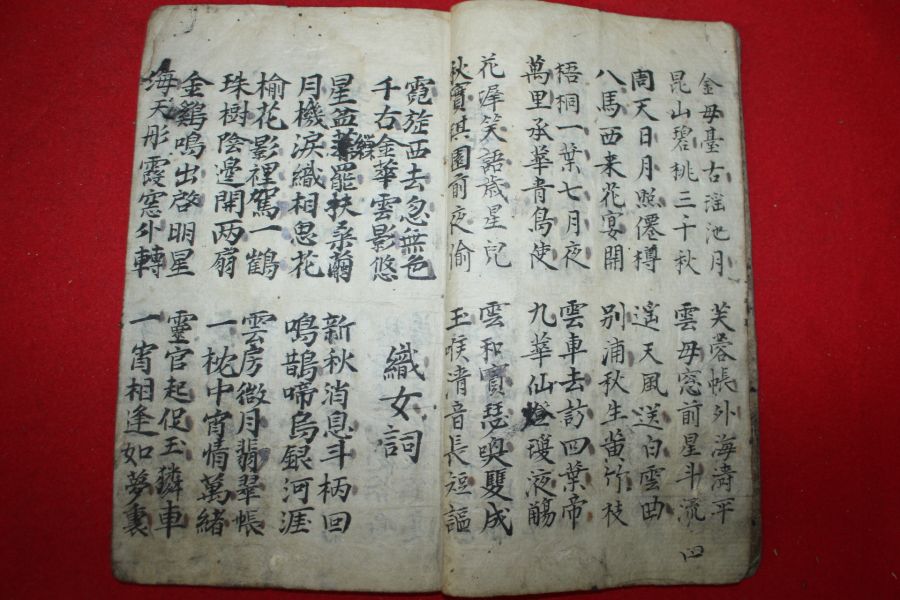 金母臺古瑤池月
昆山碧桃三千秋
芙蓉帳外海濤平
雲母窓前星斗流
周天日月照僊樽
八馬西来花宴開
遙天風送白雲曲
別浦秋生黃竹枝
梧桐一葉七月夜
萬里承華青鳥使
雲車去訪四葉帝
九華仙燈瓊液觴
花遲笑語歲星兒
秋實琪園前夜偷
雲和寶瑟與雙成
玉喉清音長短謳
四
霓旌西去忽無色
千古金華雲影悠
織女詞
星盆繅罷扶桑繭
月機淚織相思花
新秋消息斗柄回
鳴鵲啼烏銀河涯
榆花影裡駕一鶴
珠樹陰邊開兩扇
雲房微月翡翠帳
一枕中宵情萬緒
金鷄鳴出啓明星
海天彤霞窓外轉
靈官起促玉獜車
一宵相逢如夢裏